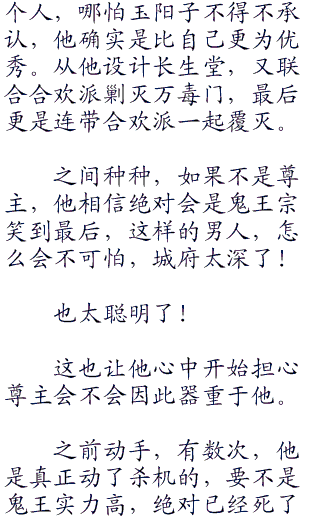 个人，哪怕玉阳子不得不承
认，他确实是比自己更为优
秀。从他设计长生堂，又联
合合欢派剿灭万毒门，最后
更是连带合欢派一起覆灭。
之间种种，如果不是尊
主，他相信绝对会是鬼王宗
笑到最后，这样的男人，怎
么会不可怕，城府太深了！
也太聪明了！
这也让他心中开始担心
尊主会不会因此器重于他。
之前动手，有数次，他
是真正动了杀机的，要不是
鬼王实力高，绝对已经死了